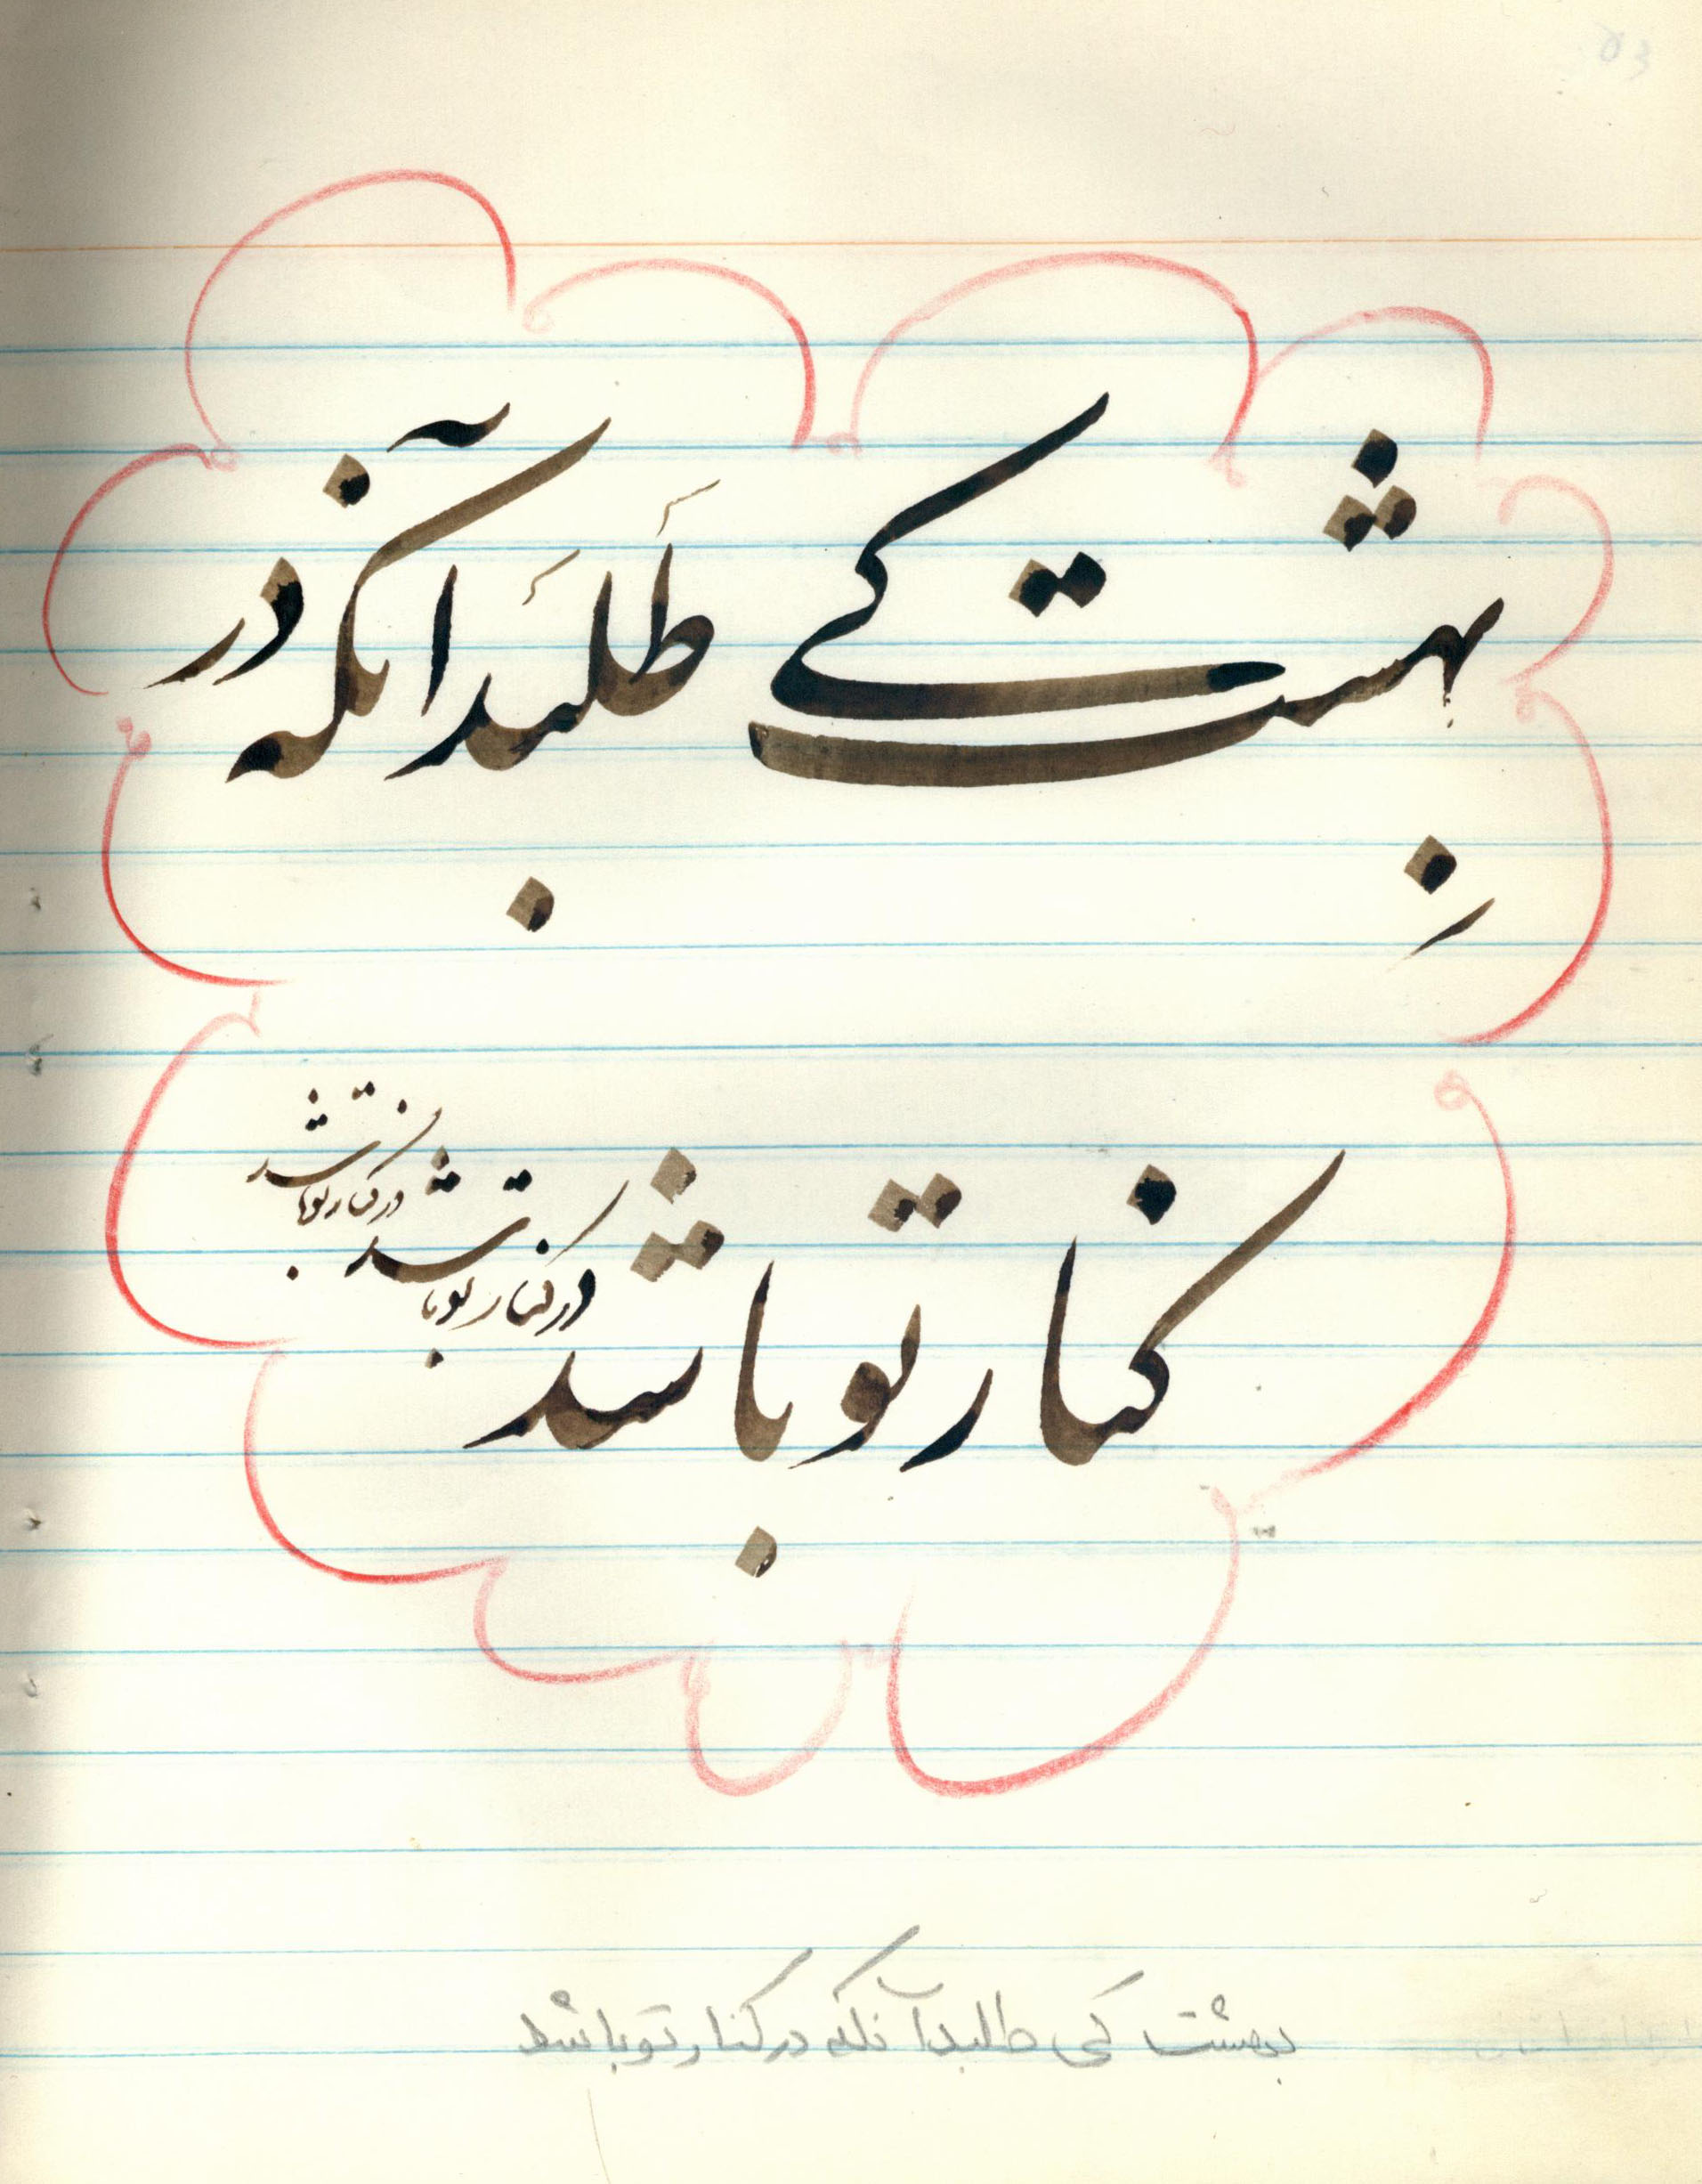 بهشت کے طَلَبد آنکه در
کنار تو باشد
در کنار تو باشد
در کنار تو باشد
بهشت کی طلبد آنکه در کنار تو باشد